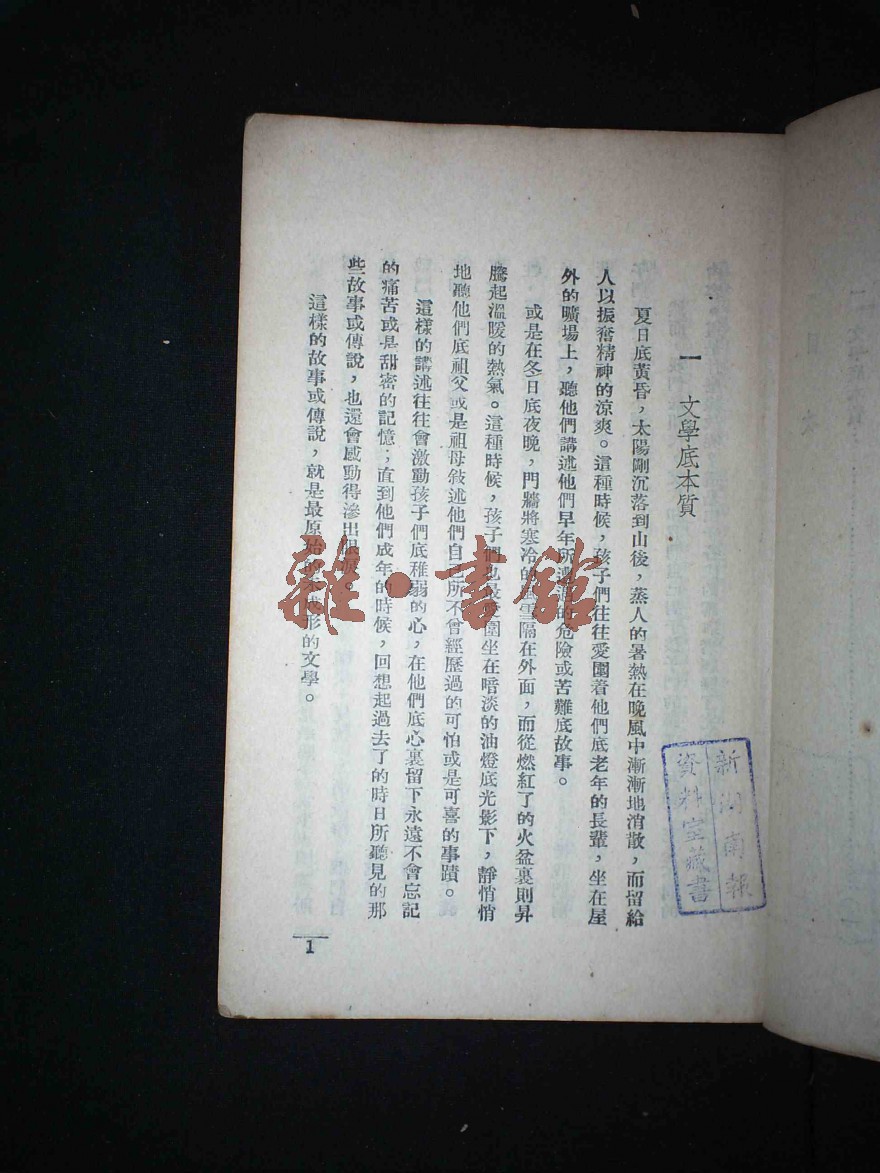 一　文學底本质
夏日底黃昏，太陽剛沉落到山後，蒸人的暑熱在晚風中漸漸地消散，而留給
人以振奮精神的涼爽。這種時候，孩子們往往愛圍着他們底老年的長輩，坐在屋
外的曠場上，聽他們講述他們早年所的危險或苦難底故事。
或是在冬日底夜晚，門牆將寒冷的雪隔在外面，而從燃紅了的火盆裏則昇
騰起溫暖的熱氣。這種時候，孩子們圍坐在暗淡的油燈底光影下，靜悄悄
地聽他們底祖父或是祖母敍述他們自己所不曾經歷過的可怕或是可喜的事蹟。
這樣的講述往往會激動孩子們底稚弱的心，在他們底心裏留下永遠不會忘記
的痛苦或是甜密的記憶；直到他們成年的時候，回想起過去了的時日所聽見的那
些故事或傳說，也還會感動得滲出。
這樣的故事或傳說，就是最原始的形的文學。
1
雜·書館
新湖南報
資料室藏書